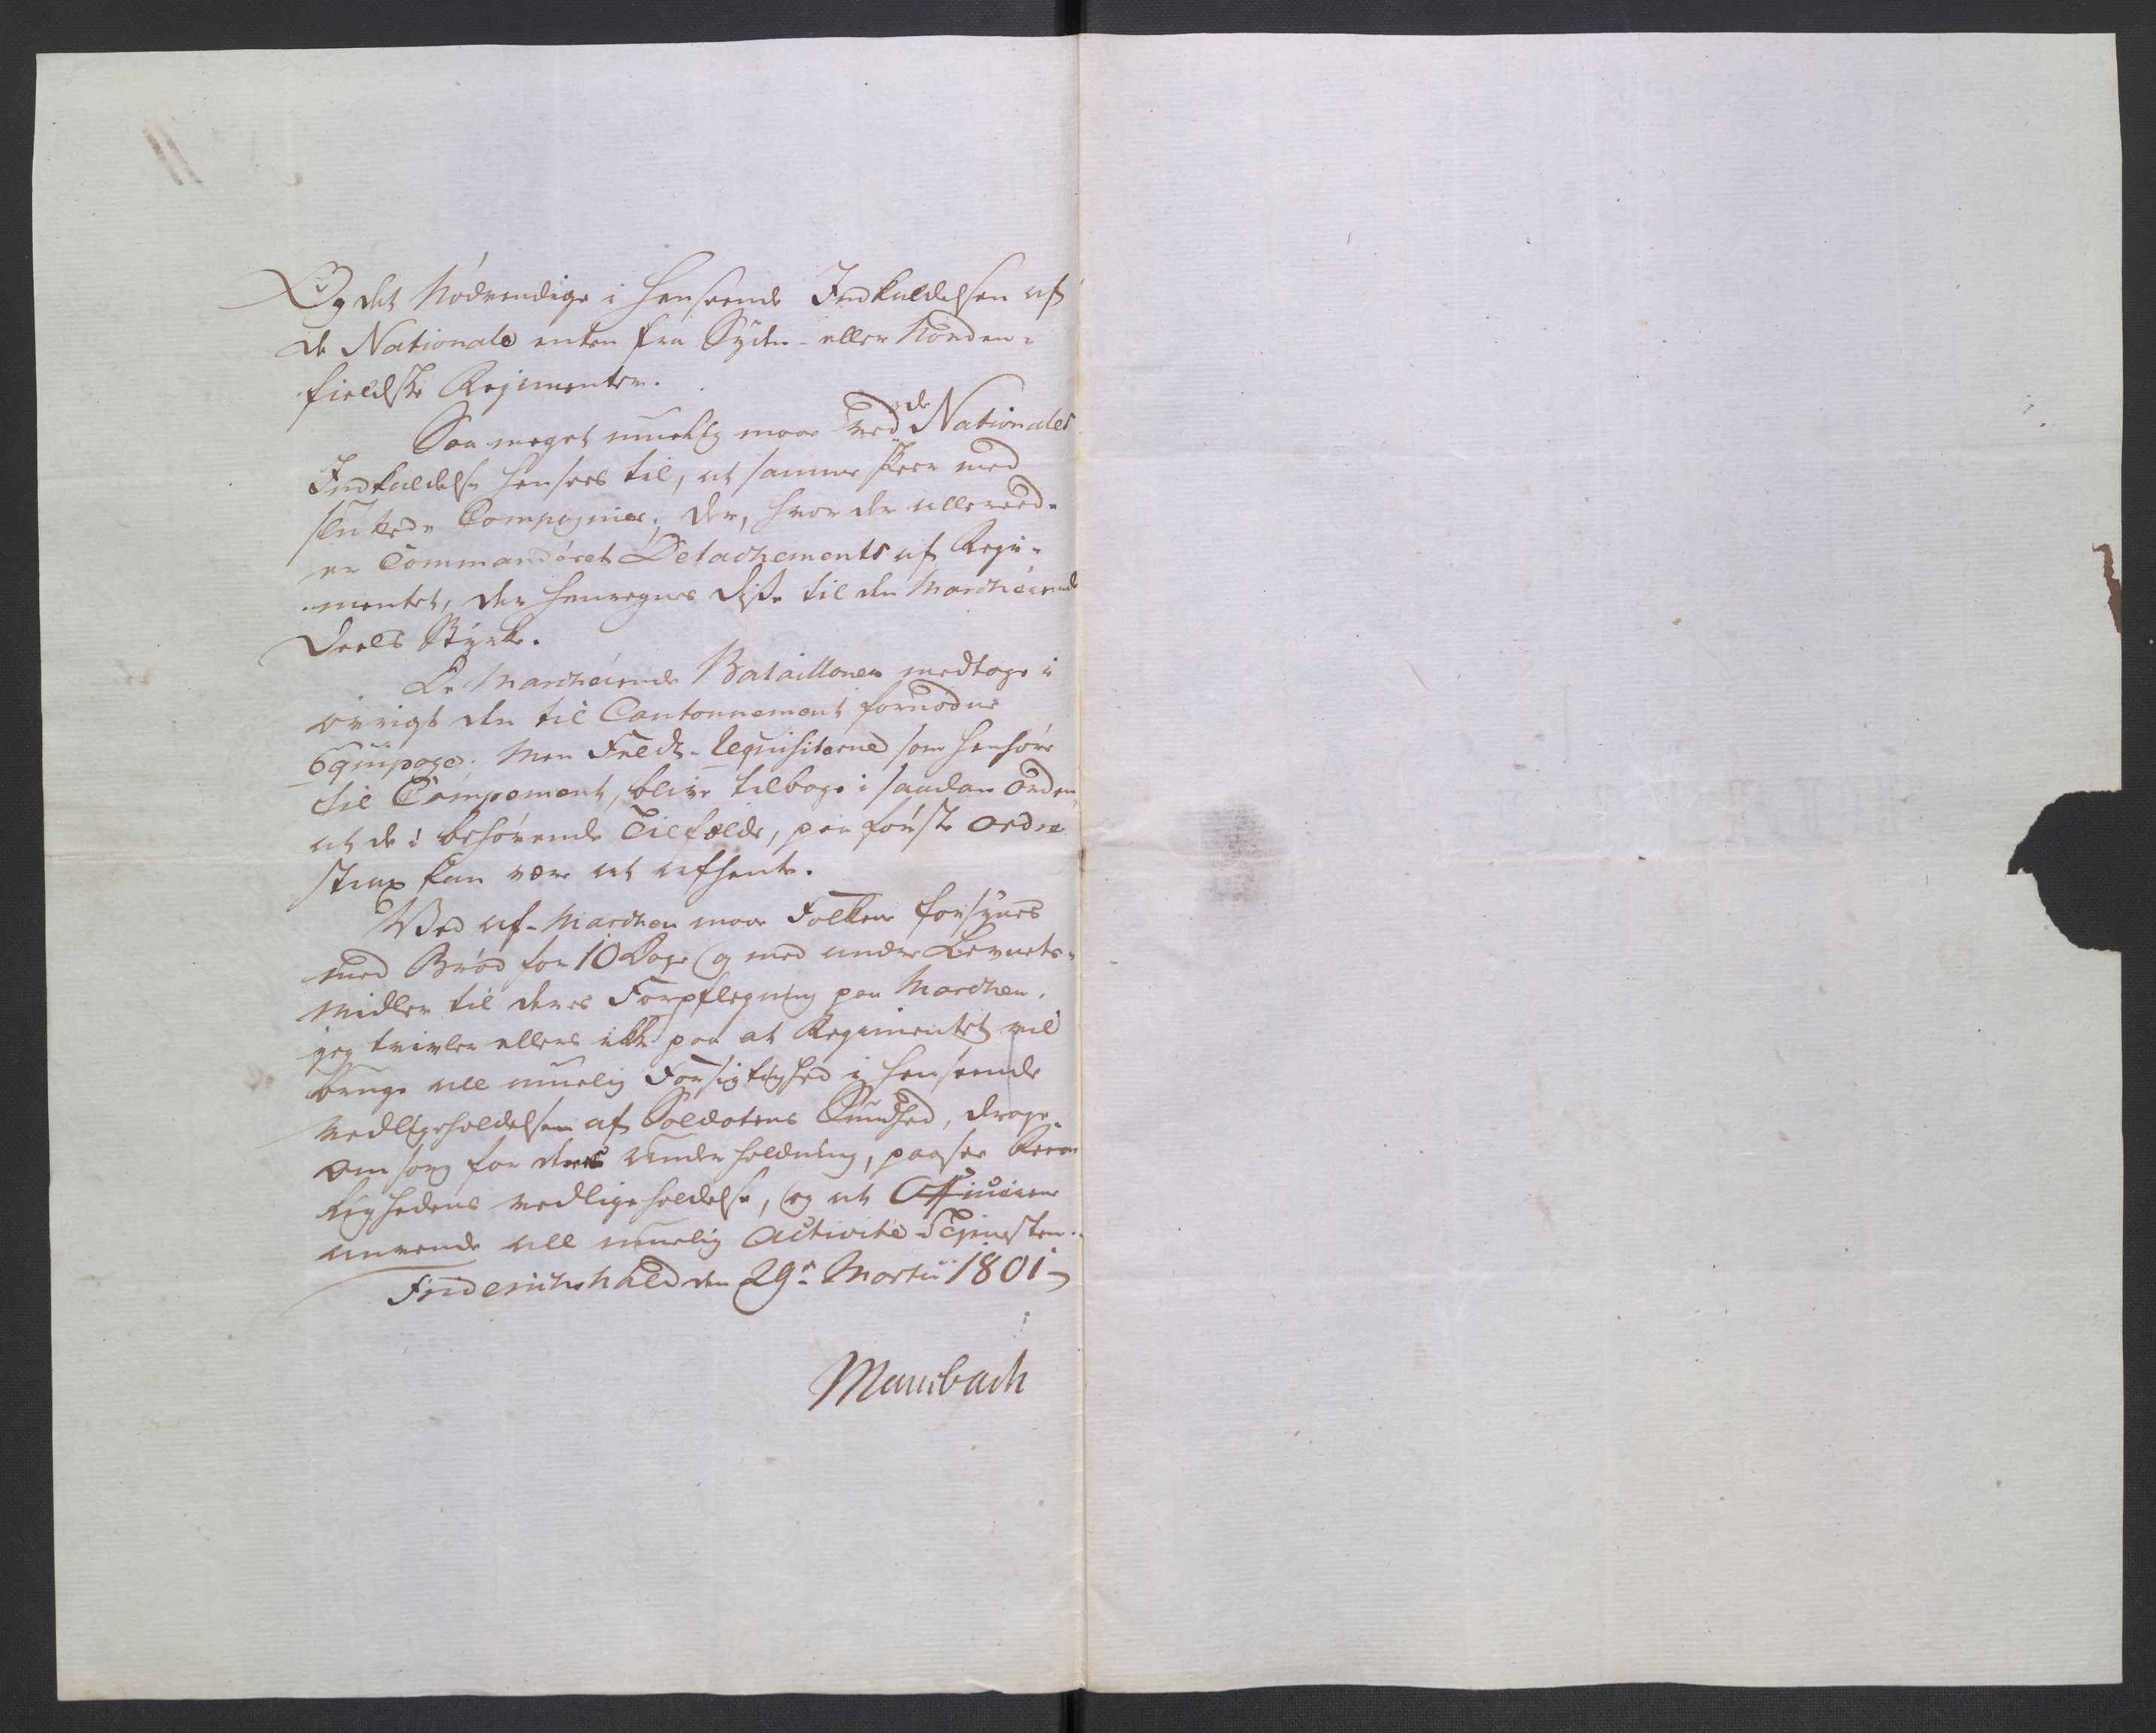 Og det Nödvendige i henseende Indkaldelsen af
de Nationale enten fra Syden- eller Norden-
fieldske Regimenter.
Saa meget muelig maae ved de Nationales
Indkaldelse hensees til, at samme skeer med
sluttede Compagnier; der, hvor der allerede
er Commanderet Detachements af Regi-
mentet, der henregnes disse til den Marcherende
Deels Styrke.
De Marcherende Batailloner medtage i
övrigt den til Cantonnement fornödne
Equipage. Men Feldt-Requisiterne som henhöre
til Campement, blive tilbage i saadan Orden,
at de i behövende Tilfælde, paa förste Ordre
strax kan være at afhente.
Ved af-Marchen maae Folkene forsynes
med Bröd for 10 Dage og med andre Levnets-
Midler til deres Forpflegning paa Marchen.
jeg tvivler ellers ikke paa at Regimentet vil
bruge all muelig Forsigtighed i henseende
Vedligeholdelsen af Soldatens Sundhed, drage
Omsorg for deres Underholdning, paasee
vedligeholdelse, og at Officiererne
anvende all muelig Activité i Tienesten.
Friderichshald den 29de Martii 1801
Mansbach